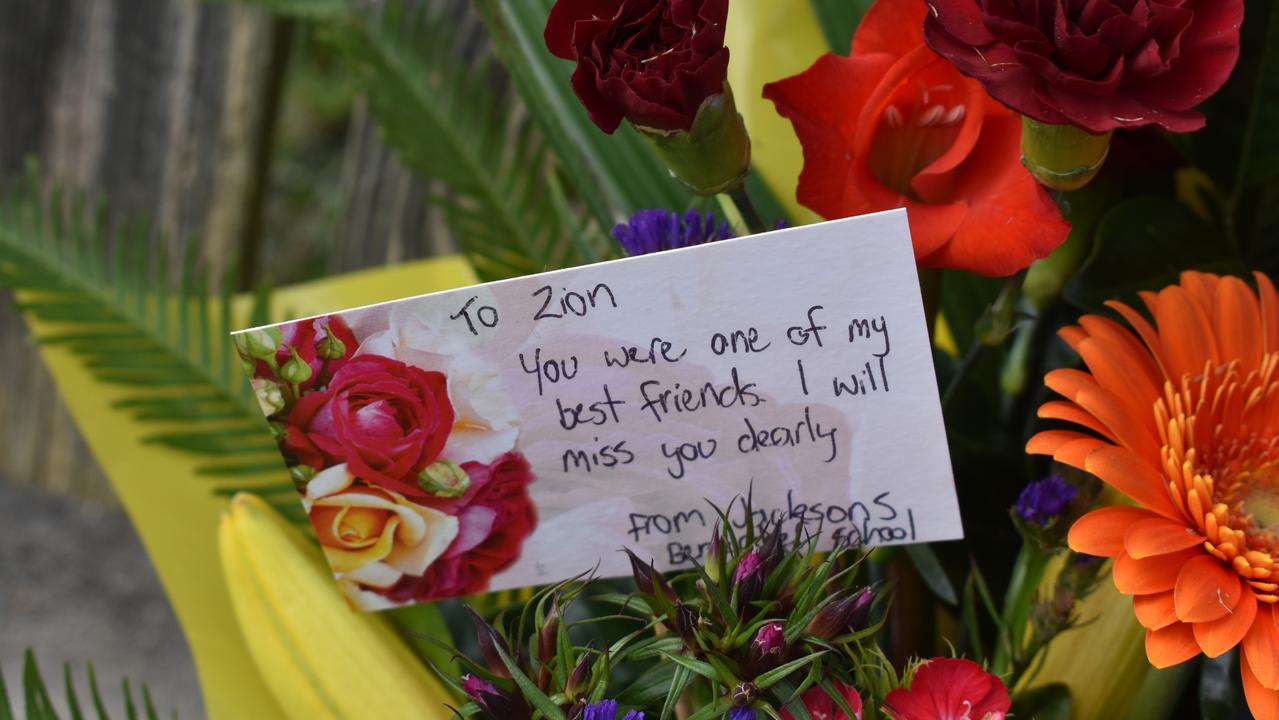 To Zion
You were one of my
best friends. I will
miss you dearly
from Jackson S
School